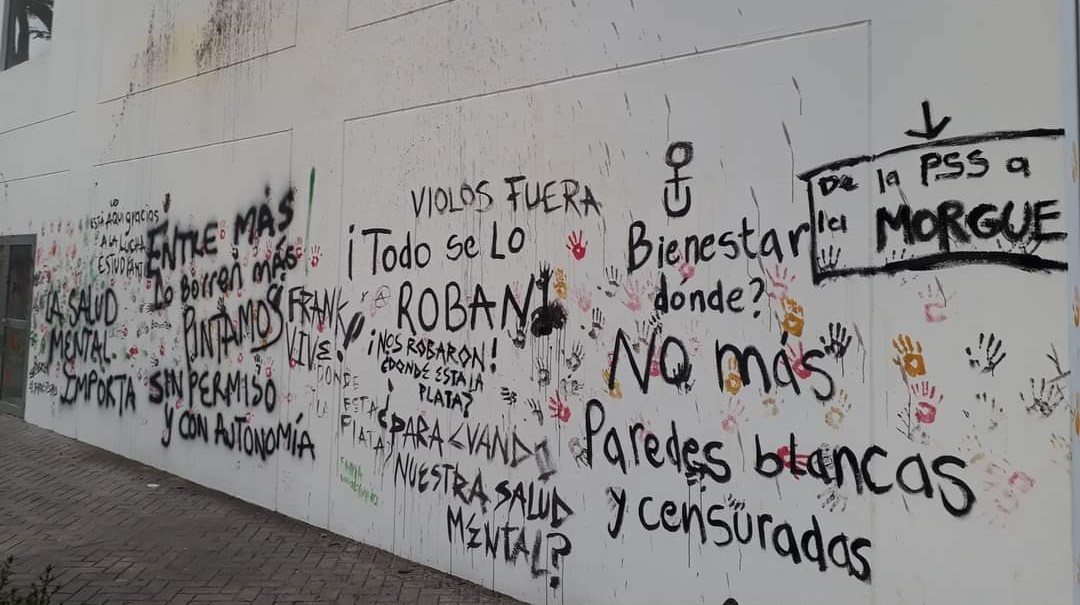 ESTÁ AQUÍ gracias
A LA LUCHA
ESTUDIANTIL
LA SALUD
MENTAL
IMPORTA
ENTRE MÁS
lo borren más
PINTAMOS
SIN PERMISO
Y CON AUTONOMÍA
FRANK
VIVE!
DONDE
LA
VIOLOS FUERA
¡Todo se LO
ROBAN!
¡NOS ROBARON!
¿DONDE ESTA LA
PLATA?
¿PARA CUANDO
NUESTRA SALUD
MENTAL?
Bienestar
donde?
No más
Paredes blancas
y censuradas
De la PSS a
la MORGUE